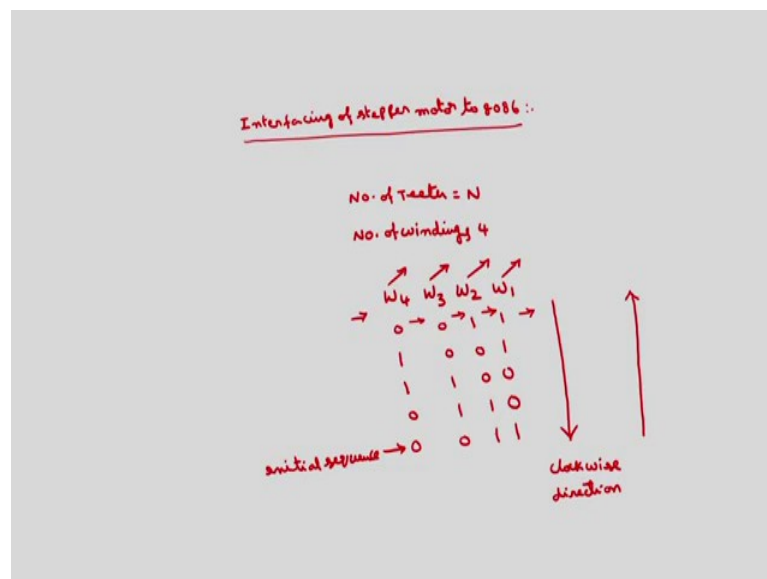 Interfacing of stepper motor to 8086 :.
No. of Teeth = N
No. of windings 4
W4 W3 W2 W1
→ 0 → 0 → 1 → 1 →
1 0 0 1
1 1 0 0
0 1 1 0
initial sequence → 0 0 1 1
clockwise
direction